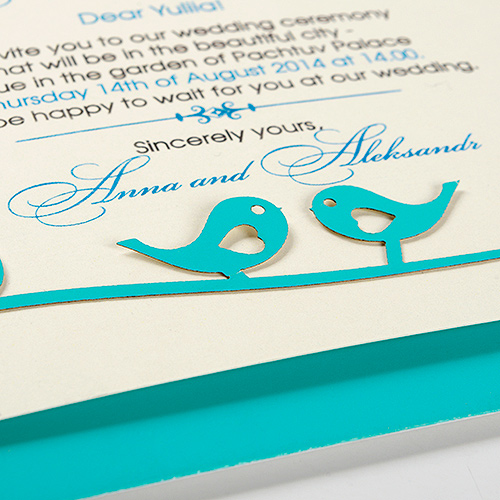 Dear Yuliia!
vite you to our wedding ceremony
hat will be in the beautiful city -
ue in the garden of Pachtuv Palace
hursday 14th of August 2014 at 14.00.
be happy to wait for you at our wedding.
Sincerely yours,
Anna and Aleksandr